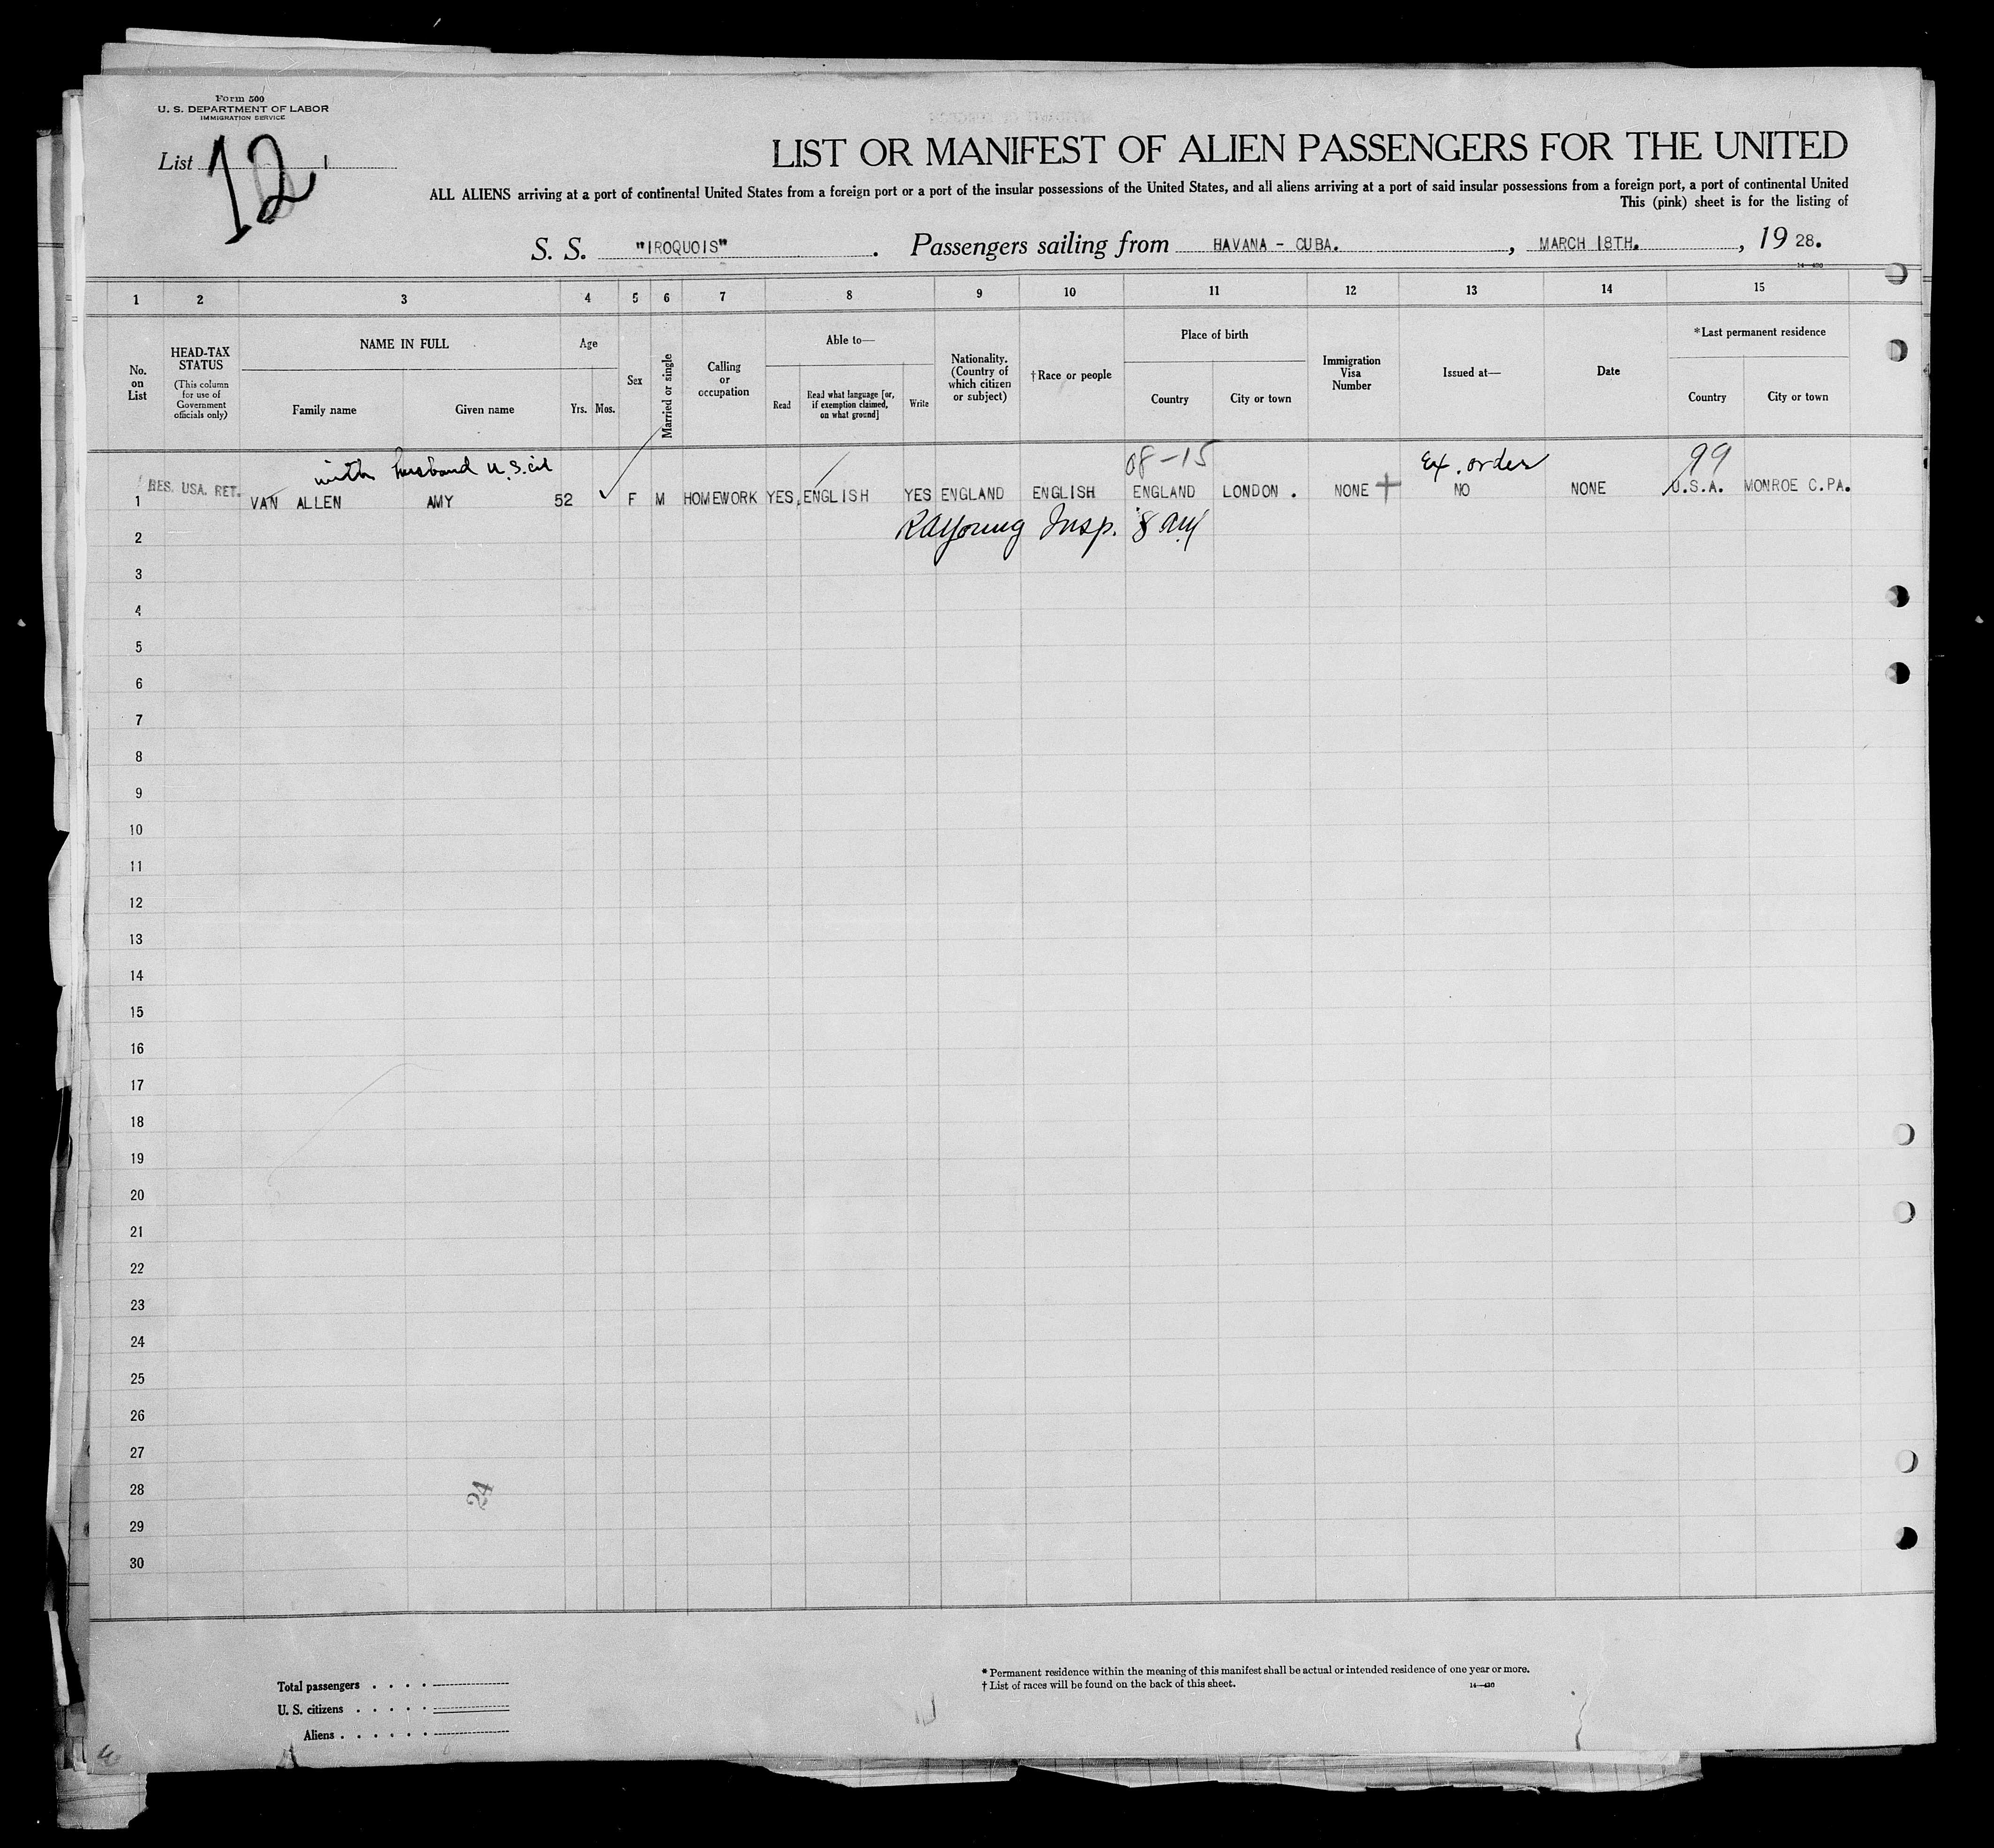 Form 500
U. S. DEPARTMENT OF LABOR
IMMIGRATION SERVICE
List 12 1
LIST OR MANIFEST OF ALIEN PASSENGERS FOR THE UNITED
ALL ALIENS arriving at a port of continental United States from a foreign port or a port of the insular possessions of the United States, and all aliens arriving at a port of said insular possessions from a foreign port, a port of continental United
This (pink) sheet is for the listing of
S. S. "IROQUOIS". Passengers sailing from HAVANA - CUBA., MARCH 18TH., 19 28.
14—430
1 2 3 4 5 6 7 8 9 10 11 12 13 14 15
No. on List
HEAD-TAX STATUS
(This column for use of Government officials only)
NAME IN FULL
Family name
Given name
Age
Yrs. Mos.
Sex
Married or single
Calling or occupation
Able to—
Read
Read what language [or, if exemption claimed, on what ground]
Write
Nationality. (Country of which citizen or subject)
†Race or people
Place of birth
Country
City or town
Immigration Visa Number
Issued at—
Date
*Last permanent residence
Country
City or town
with husband U.S. cit 08-15 Ex. order 99
1 RES. USA. RET. VAN ALLEN AMY 52 F M HOMEWORK YES, ENGLISH YES ENGLAND ENGLISH ENGLAND LONDON . NONE NO NONE U.S.A. MONROE C.PA.
2 RAYoung Insp.
3
4
5
6
7
8
9
10
11
12
13
14
15
16
17
18
19
20
21
22
23
24
25
26
27
28
24
29
30
Total passengers . . . .
U. S. citizens . . . . .
Aliens . . . . . .
* Permanent residence within the meaning of this manifest shall be actual or intended residence of one year or more.
† List of races will be found on the back of this sheet.
14—430